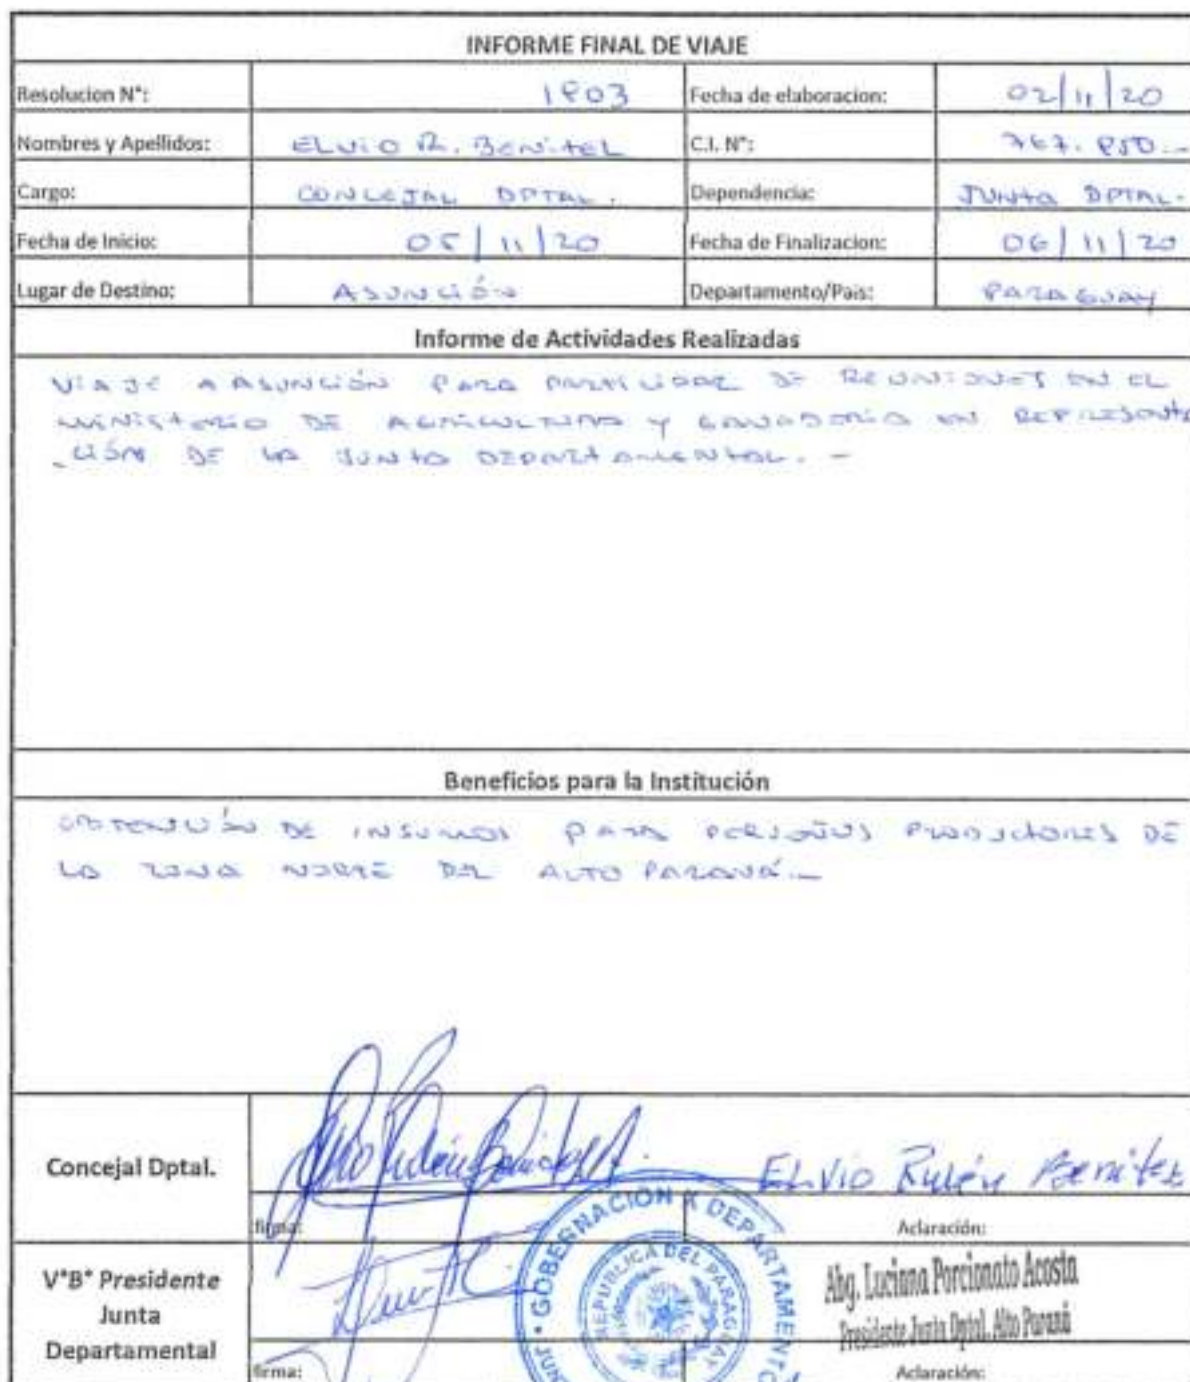 INFORME FINAL DE VIAJE
Resolucion N°: 1803 Fecha de elaboracion: 02/11/20
Nombres y Apellidos: ELVIO R. BENITEZ C.I. N°: 767.850.-
Cargo: CONCEJAL DPTAL. Dependencia: JUNTA DPTAL.
Fecha de Inicio: 05/11/20 Fecha de Finalizacion: 06/11/20
Lugar de Destino: ASUNCIÓN Departamento/Pais: PARAGUAY
Informe de Actividades Realizadas
VIAJE A ASUNCIÓN PARA PARTICIPAR DE REUNIONES EN EL
MINISTERIO DE AGRICULTURA Y GANADERIA EN REPRESENTA
-CIÓN DE LA JUNTA DEPARTAMENTAL. -
Beneficios para la Institución
OBTENCIÓN DE INSUMOS PARA PEQUEÑOS PRODUCTORES DE
LA ZONA NORTE DEL ALTO PARANÁ.-
Concejal Dptal.
Elvio Rubén Benitez
firma: Aclaración:
GOBERNACIÓN X DEPARTAMENTO
REPUBLICA DEL PARAGUAY
V°B° Presidente
Junta
Departamental
Abg. Luciana Porcionato Acosta
Presidente Junta Dptal. Alto Paraná
firma: Aclaración: